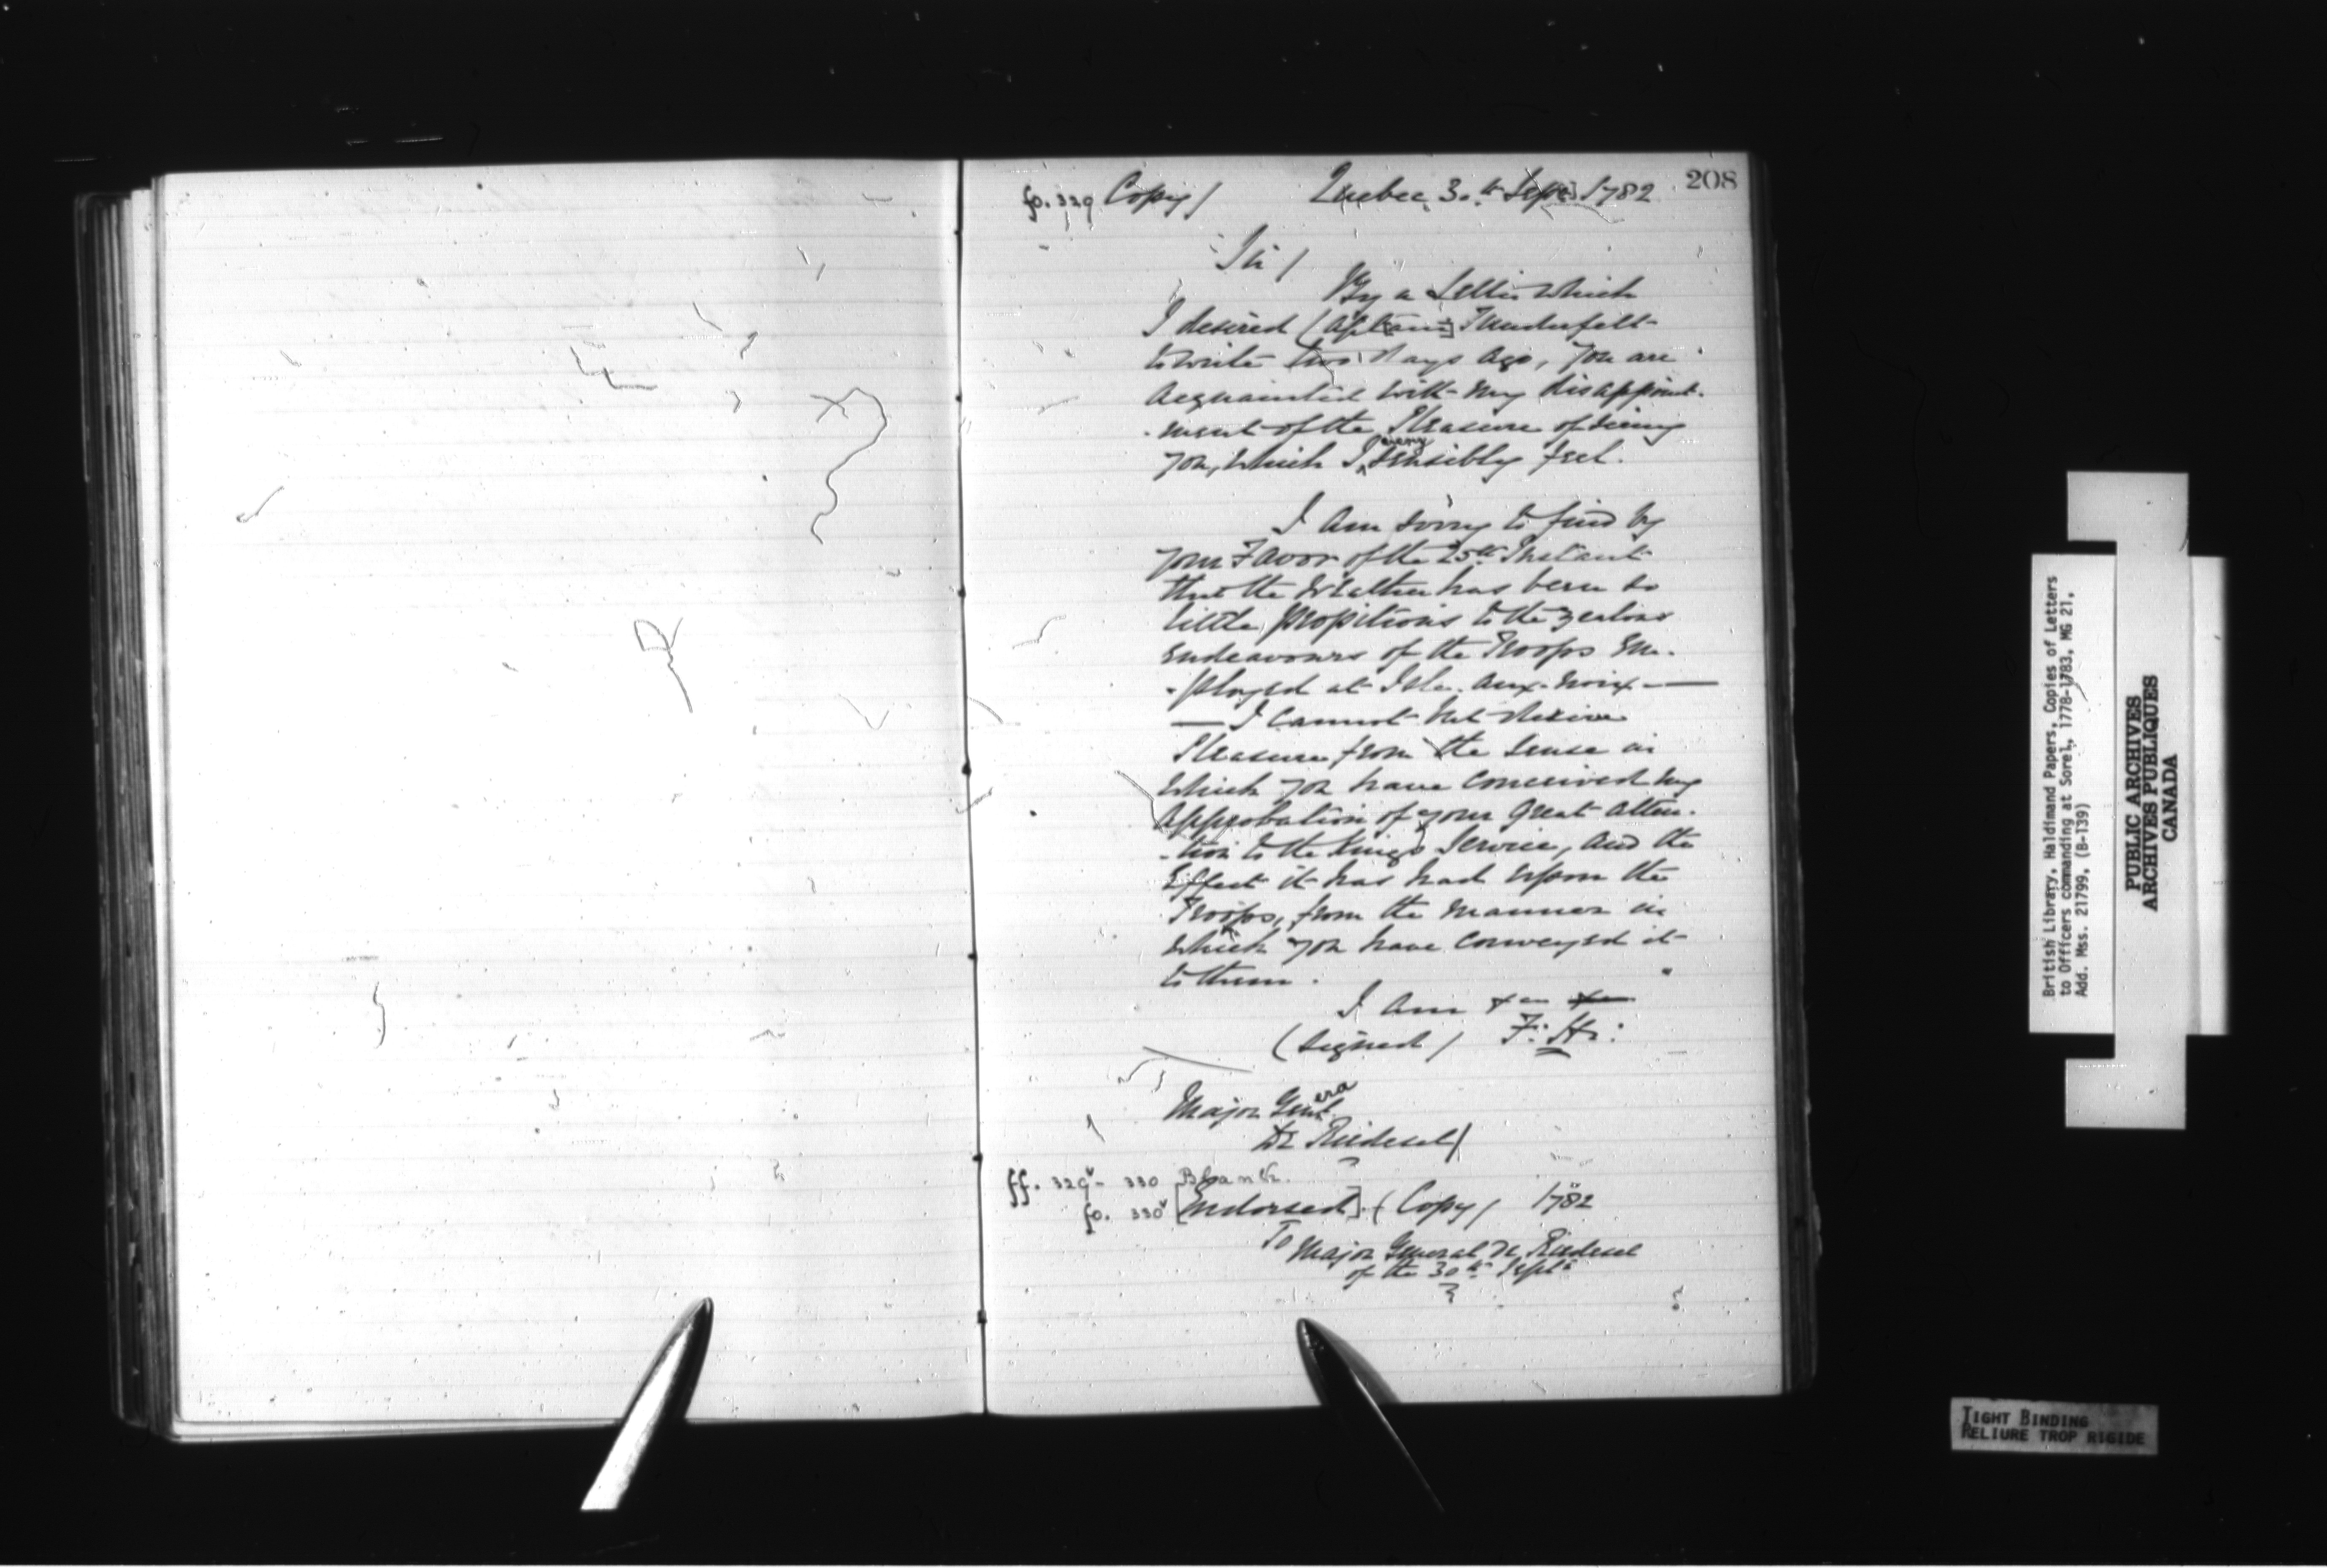 208
fo. 329 Copy/ Quebec 30.th Sept. 1782
Sir/
By a Letter which
I desired Capt[ain] Tunderfelt
to write two Days ago, you are
acquainted with my disappoint-
-ment of the Pleasure of seeing
you, which I very sensibly feel.
I am sorry to find by
your Favor of the 25th Instant
that the Weather has been so
little propitious to the zealous
Endeavours of the Troops Em-
-ployed at Isle aux noix —
— I cannot but derive
Pleasure from the sense in
which you have conceived my
approbation of your great atten-
-tion to the Kings Service, and the
Effect it has had upon the
Troops, from the manner in
which you have conveyed it
to them.
I am &c &c
(signed) F: H:
Major General
De Riedesel/
ff. 329v - 330 Blank.
fo. 330v [Endorsed]. (Copy/ 1782
To Major General De Riedesel
of the 30th Septr
British Library, Haldimand Papers, Copies of Letters
to Officers commanding at Sorel, 1778-1783, MG 21,
Add. Mss. 21799, (B-139)
PUBLIC ARCHIVES
ARCHIVES PUBLIQUES
CANADA
TIGHT BINDING
RELIURE TROP RIGIDE